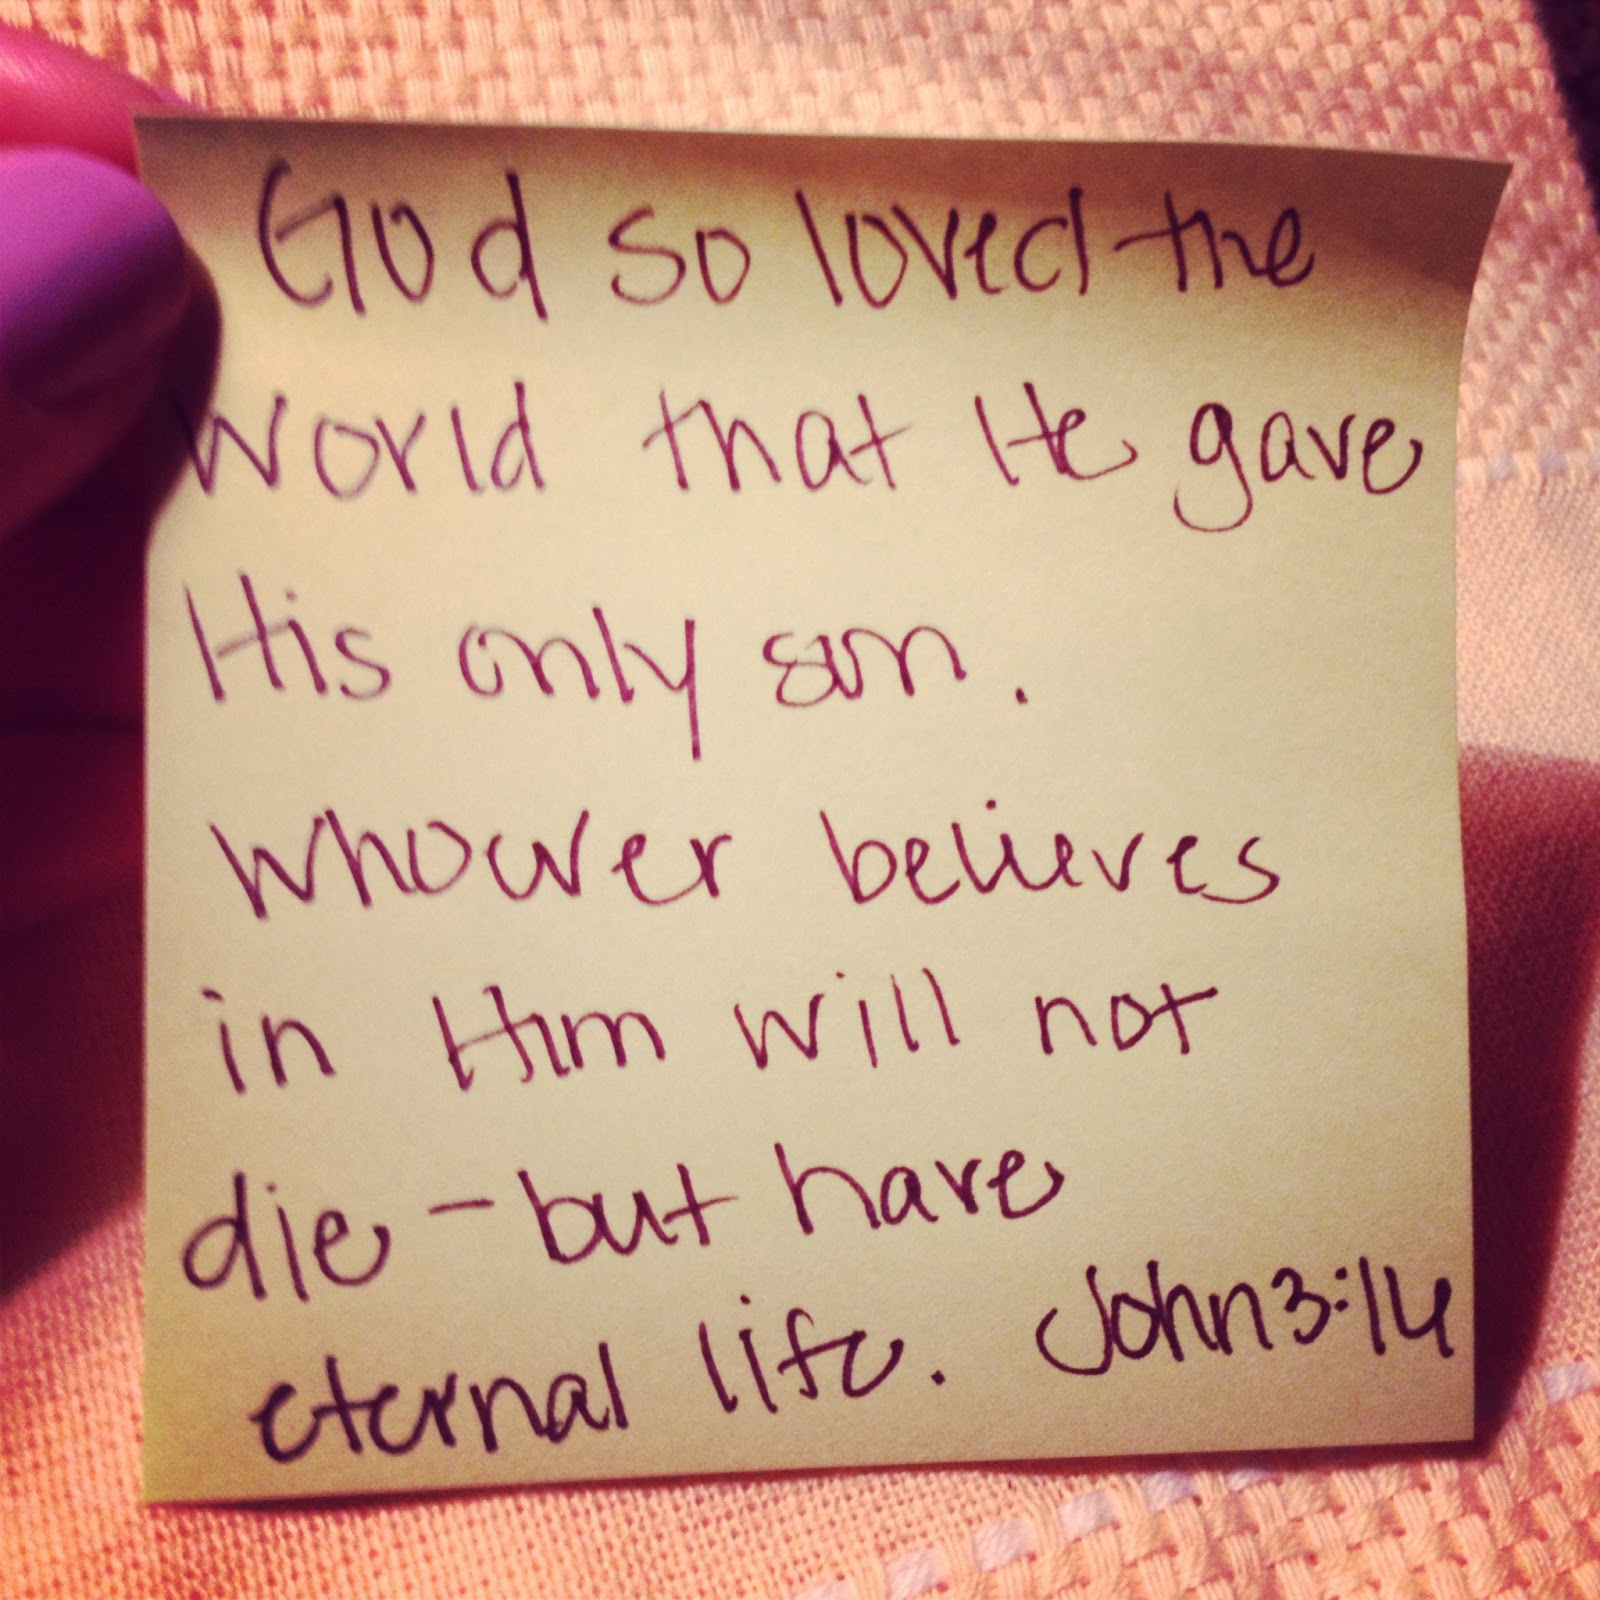 God so loved the
world that He gave
His only son.
Whoever believes
in Him will not
die - but have
eternal life. John 3:16